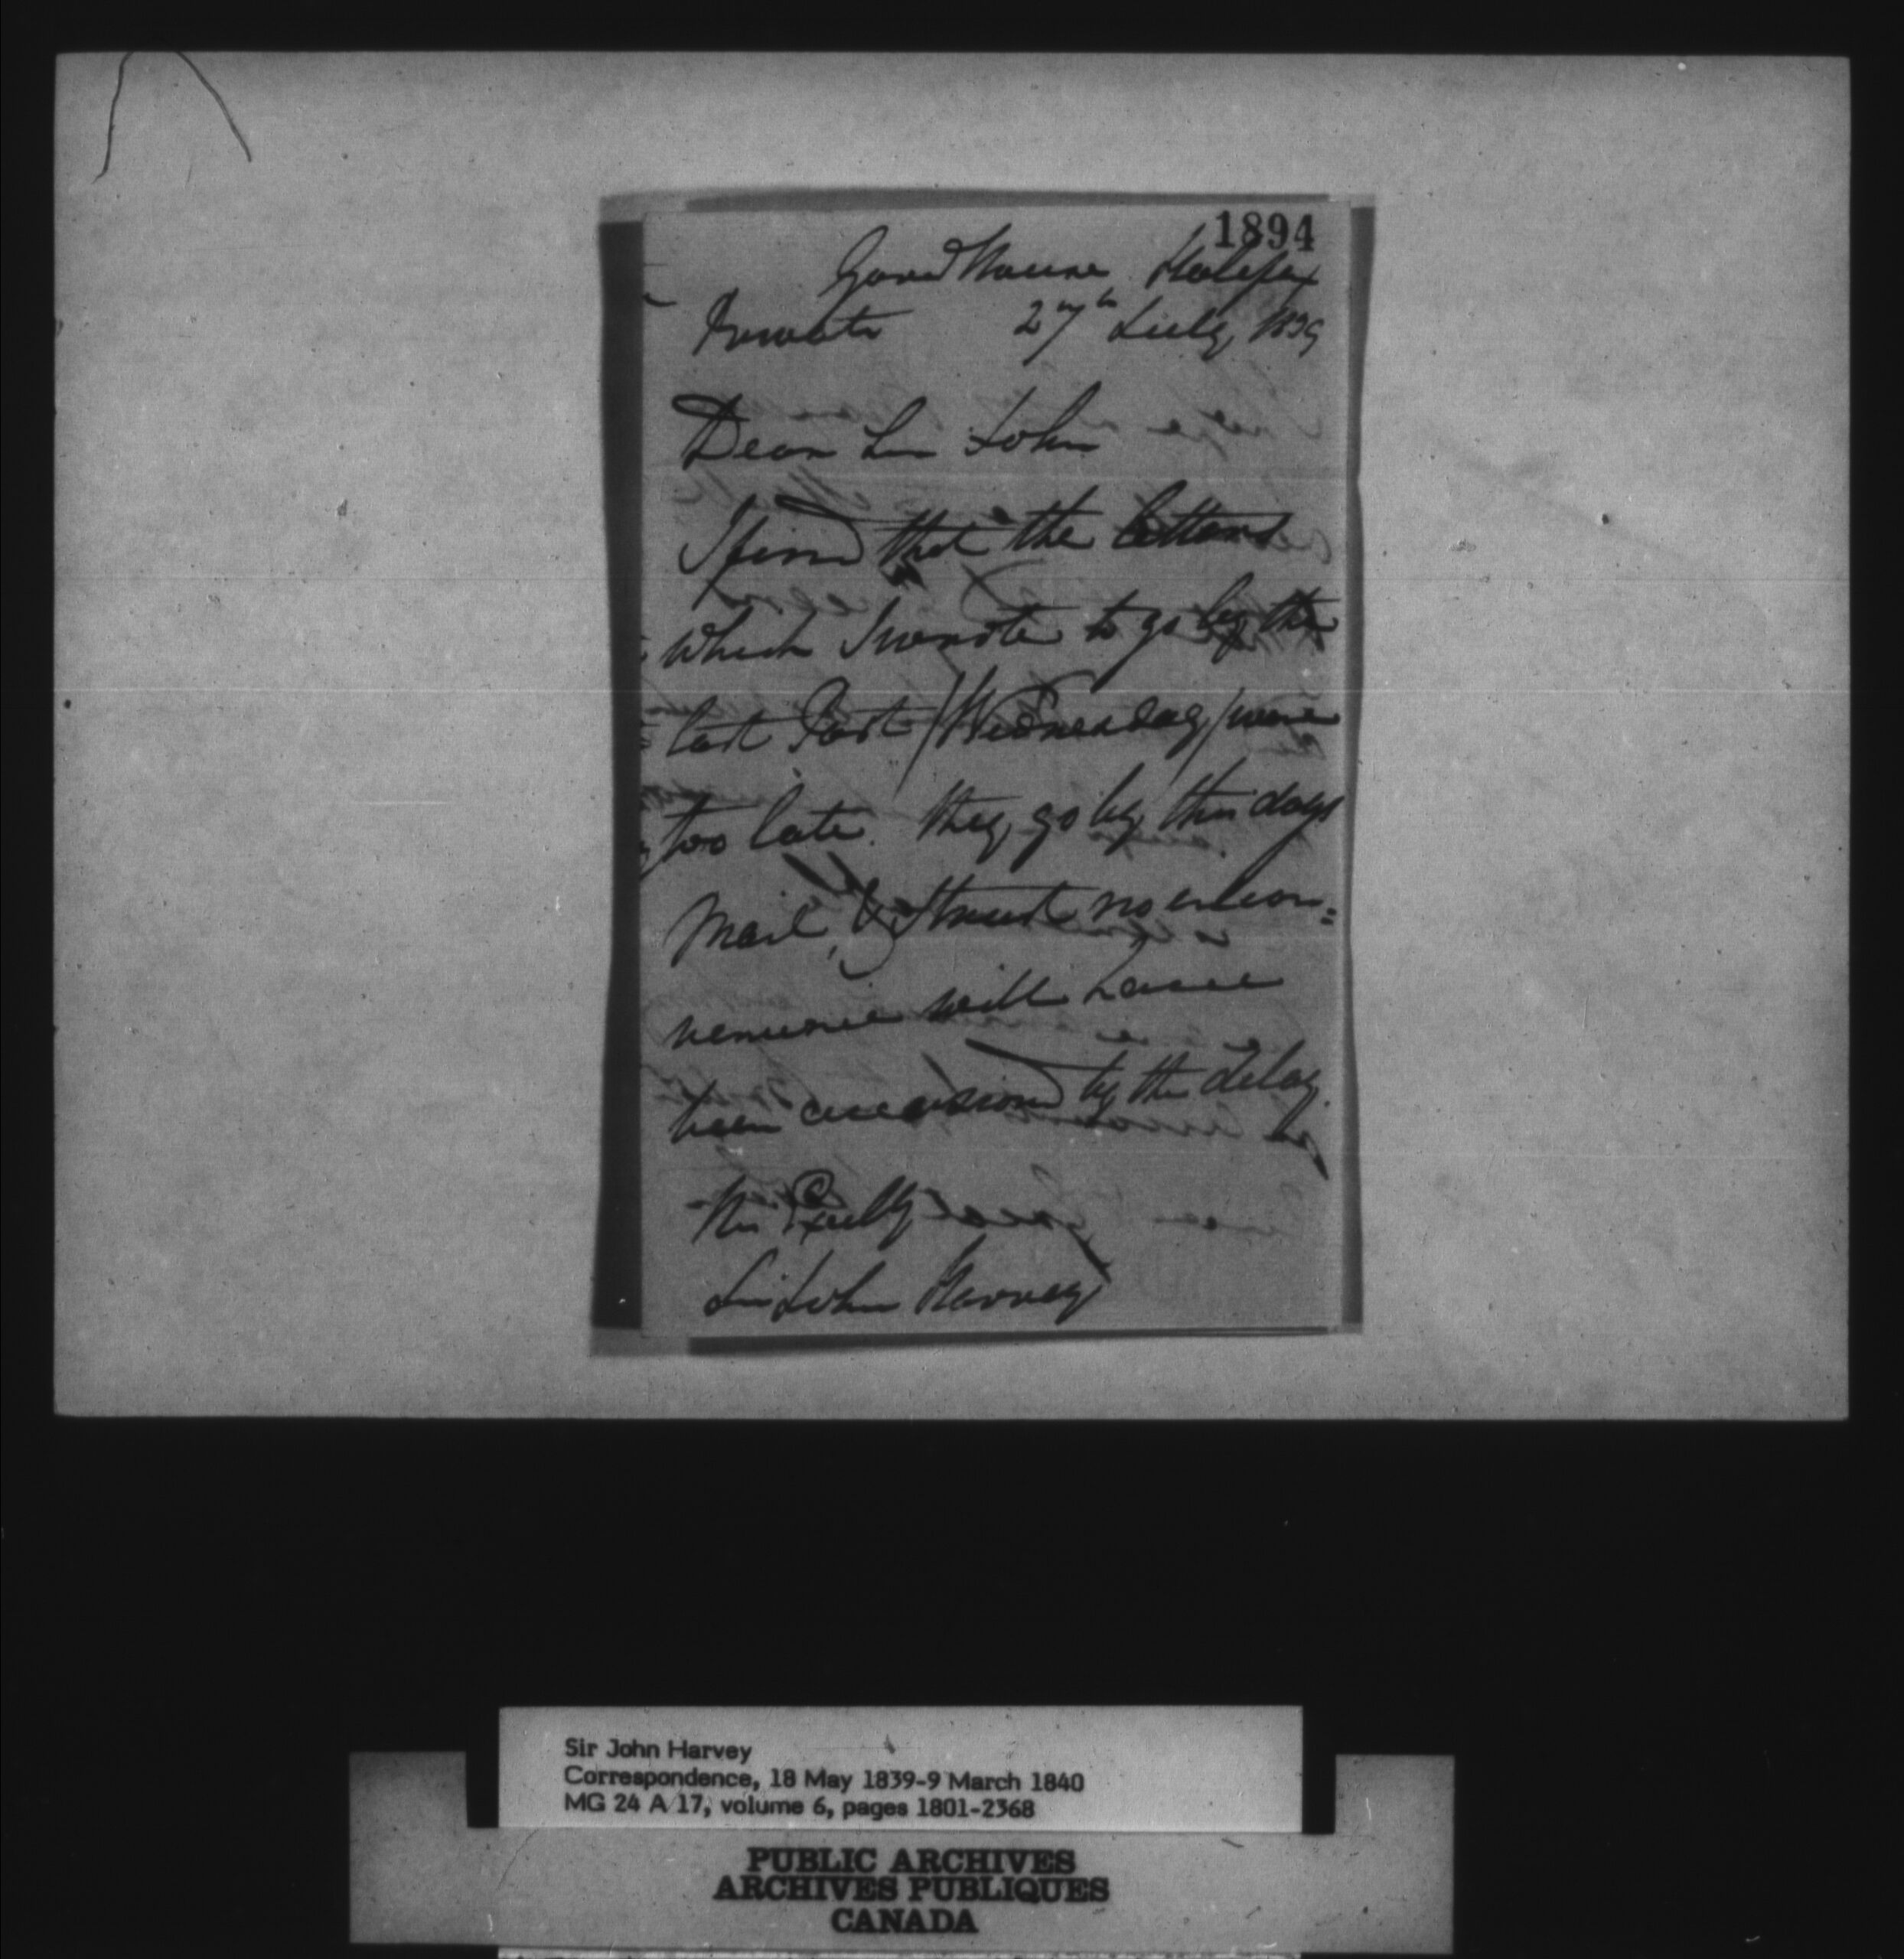 1894
Govt House Halifax
Private 27th July 1839
Dear Sir John
I find that the letters
which I wrote to go by the
last Post /Wednesday/ were
too late. They go by this days
Mail, & I trust no incon=
venience will have
been occasioned by the delay.
His Excelly
Sir John Harvey
Sir John Harvey
Correspondence, 18 May 1839-9 March 1840
MG 24 A 17, volume 6, pages 1801-2368
PUBLIC ARCHIVES
ARCHIVES PUBLIQUES
CANADA